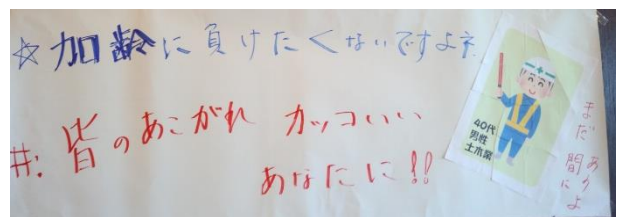 ☆加齢に負けたくないですよネ
#:皆のあこがれ カッコいい
あなたに!!
40代
男性
土木業
まだ間に
あうよ